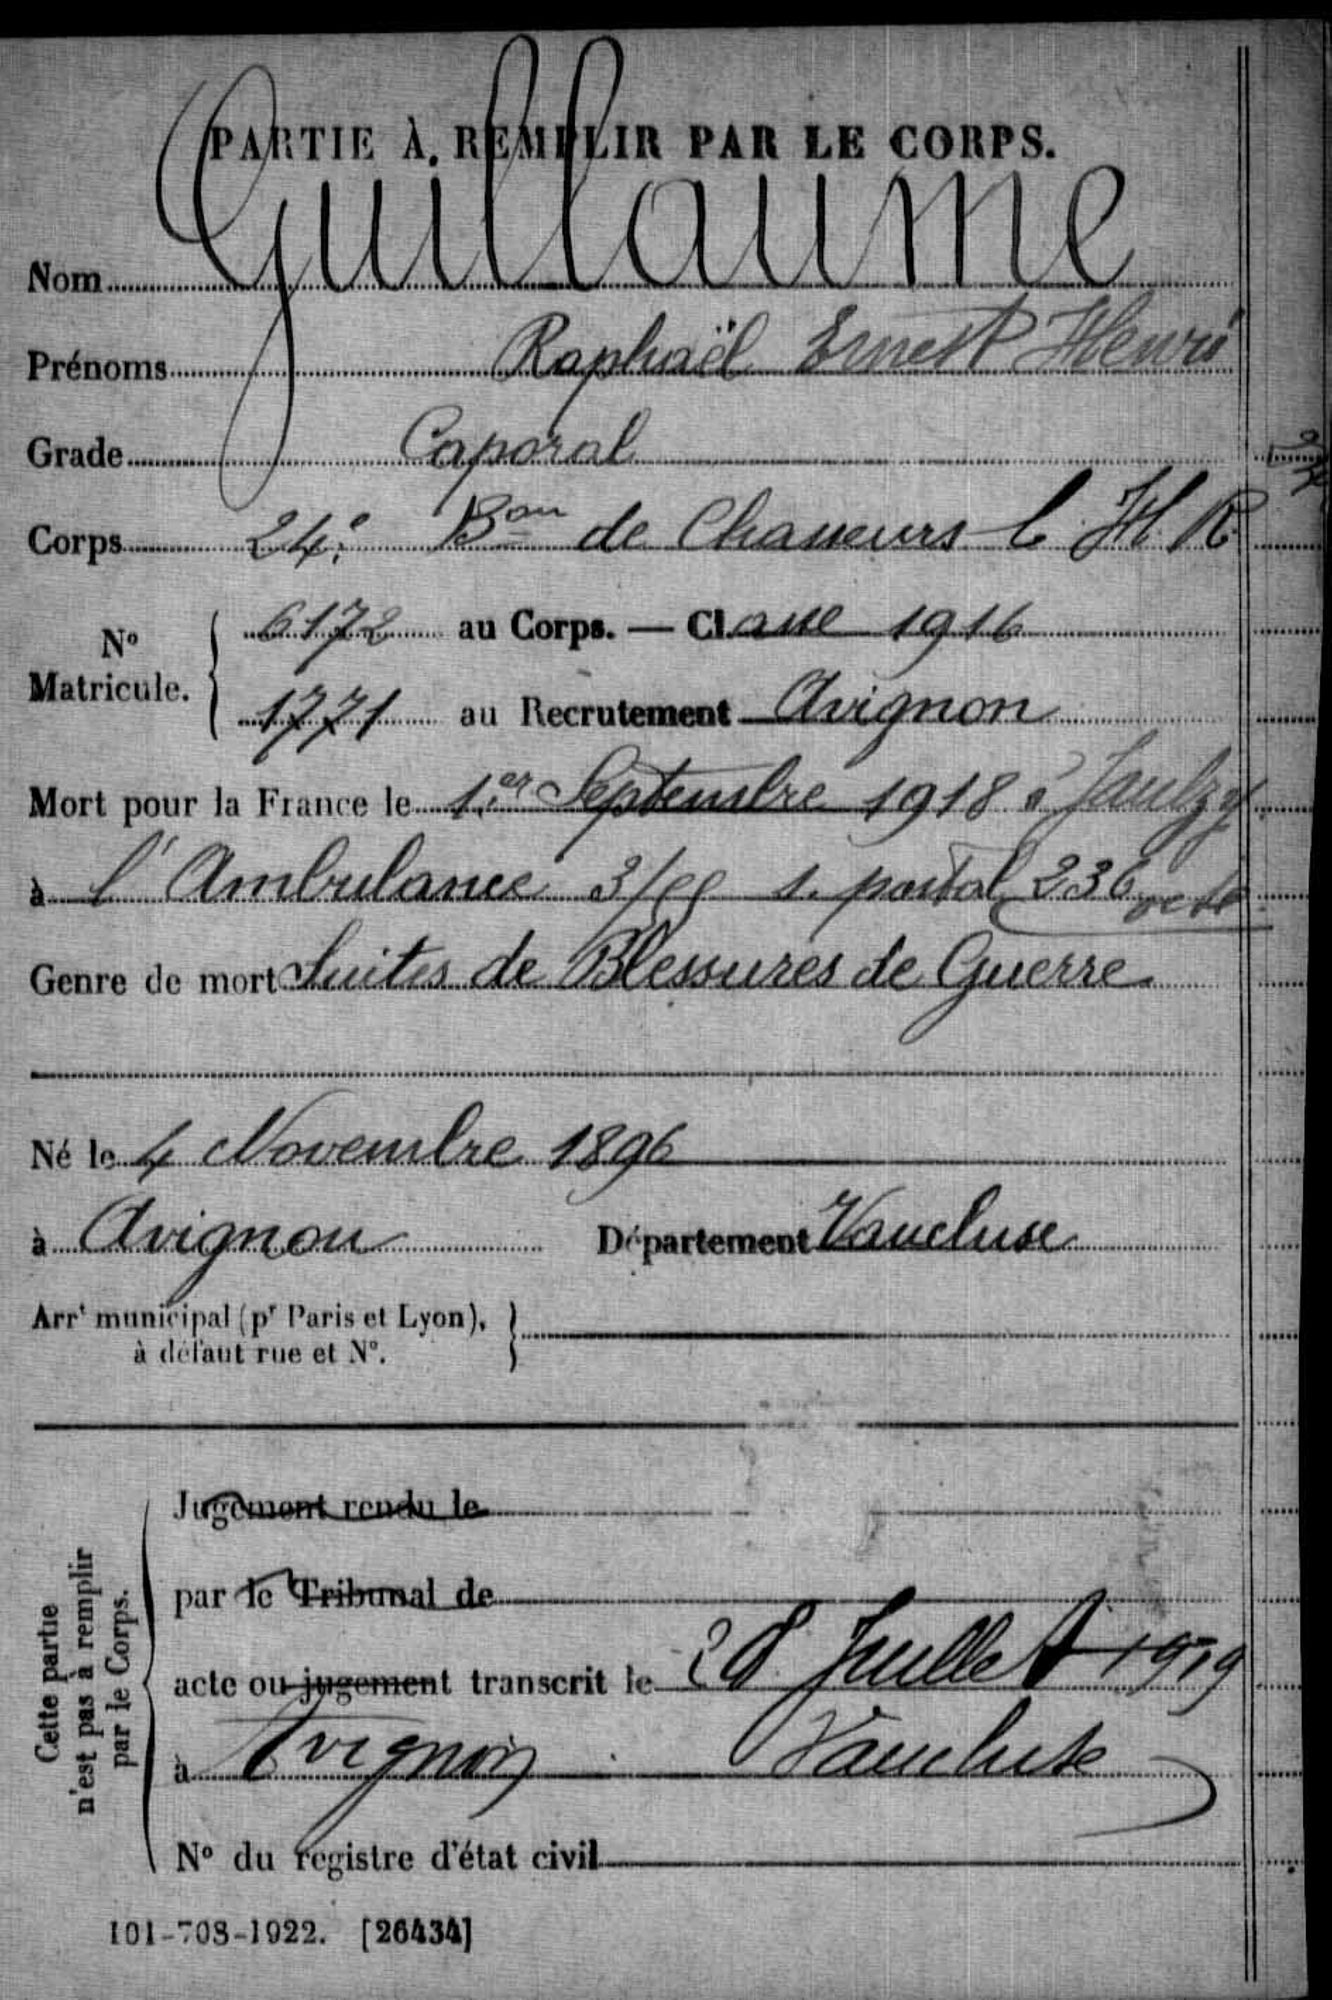 PARTIE À REMPLIR PAR LE CORPS.
Nom Guillaume
Prénoms Raphaël Ernest Henri
Grade Caporal
Corps 24e Bon de Chasseurs C H R
N° Matricule. 6172 au Corps. — Classe 1916
1771 au Recrutement Avignon
Mort pour la France le 1er Septembre 1918 à Jaulzy
à l'Ambulance 3/55 s. postal 236
Genre de mort Suites de Blessures de Guerre
Né le 4 Novembre 1896
à Avignon Département Vaucluse
Arrt municipal (pr Paris et Lyon),
à défaut rue et N°.
Cette partie
n'est pas à remplir
par le Corps.
Jugement rendu le
par le Tribunal de
acte ou jugement transcrit le 28 Juillet 1919
à Avignon Vaucluse
N° du registre d'état civil
101-708-1922. [26434]